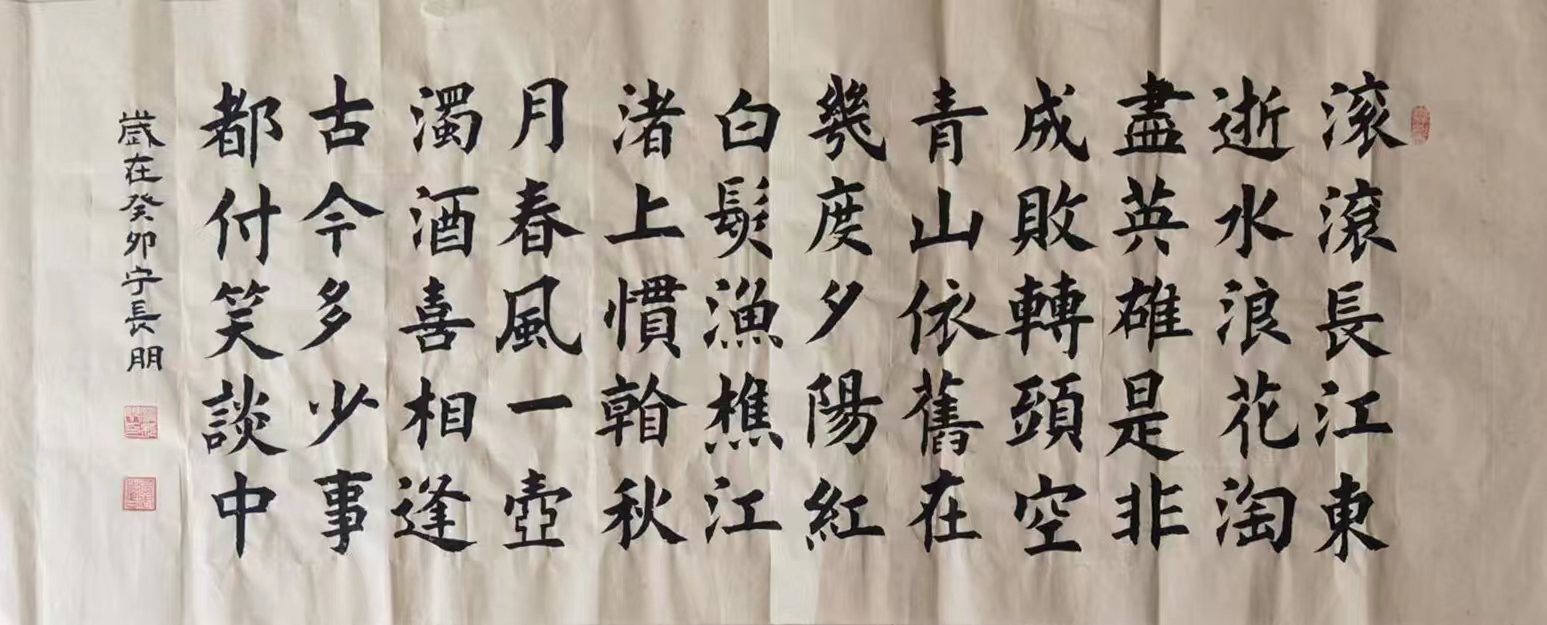 滚滾長江東
逝水浪花淘
盡英雄是非
成敗轉頭空
青山依舊在
幾度夕陽紅
白髮漁樵江
渚上慣看秋
月春風一壺
濁酒喜相逢
古今多少事
都付笑談中
歲在癸卯宇長朋